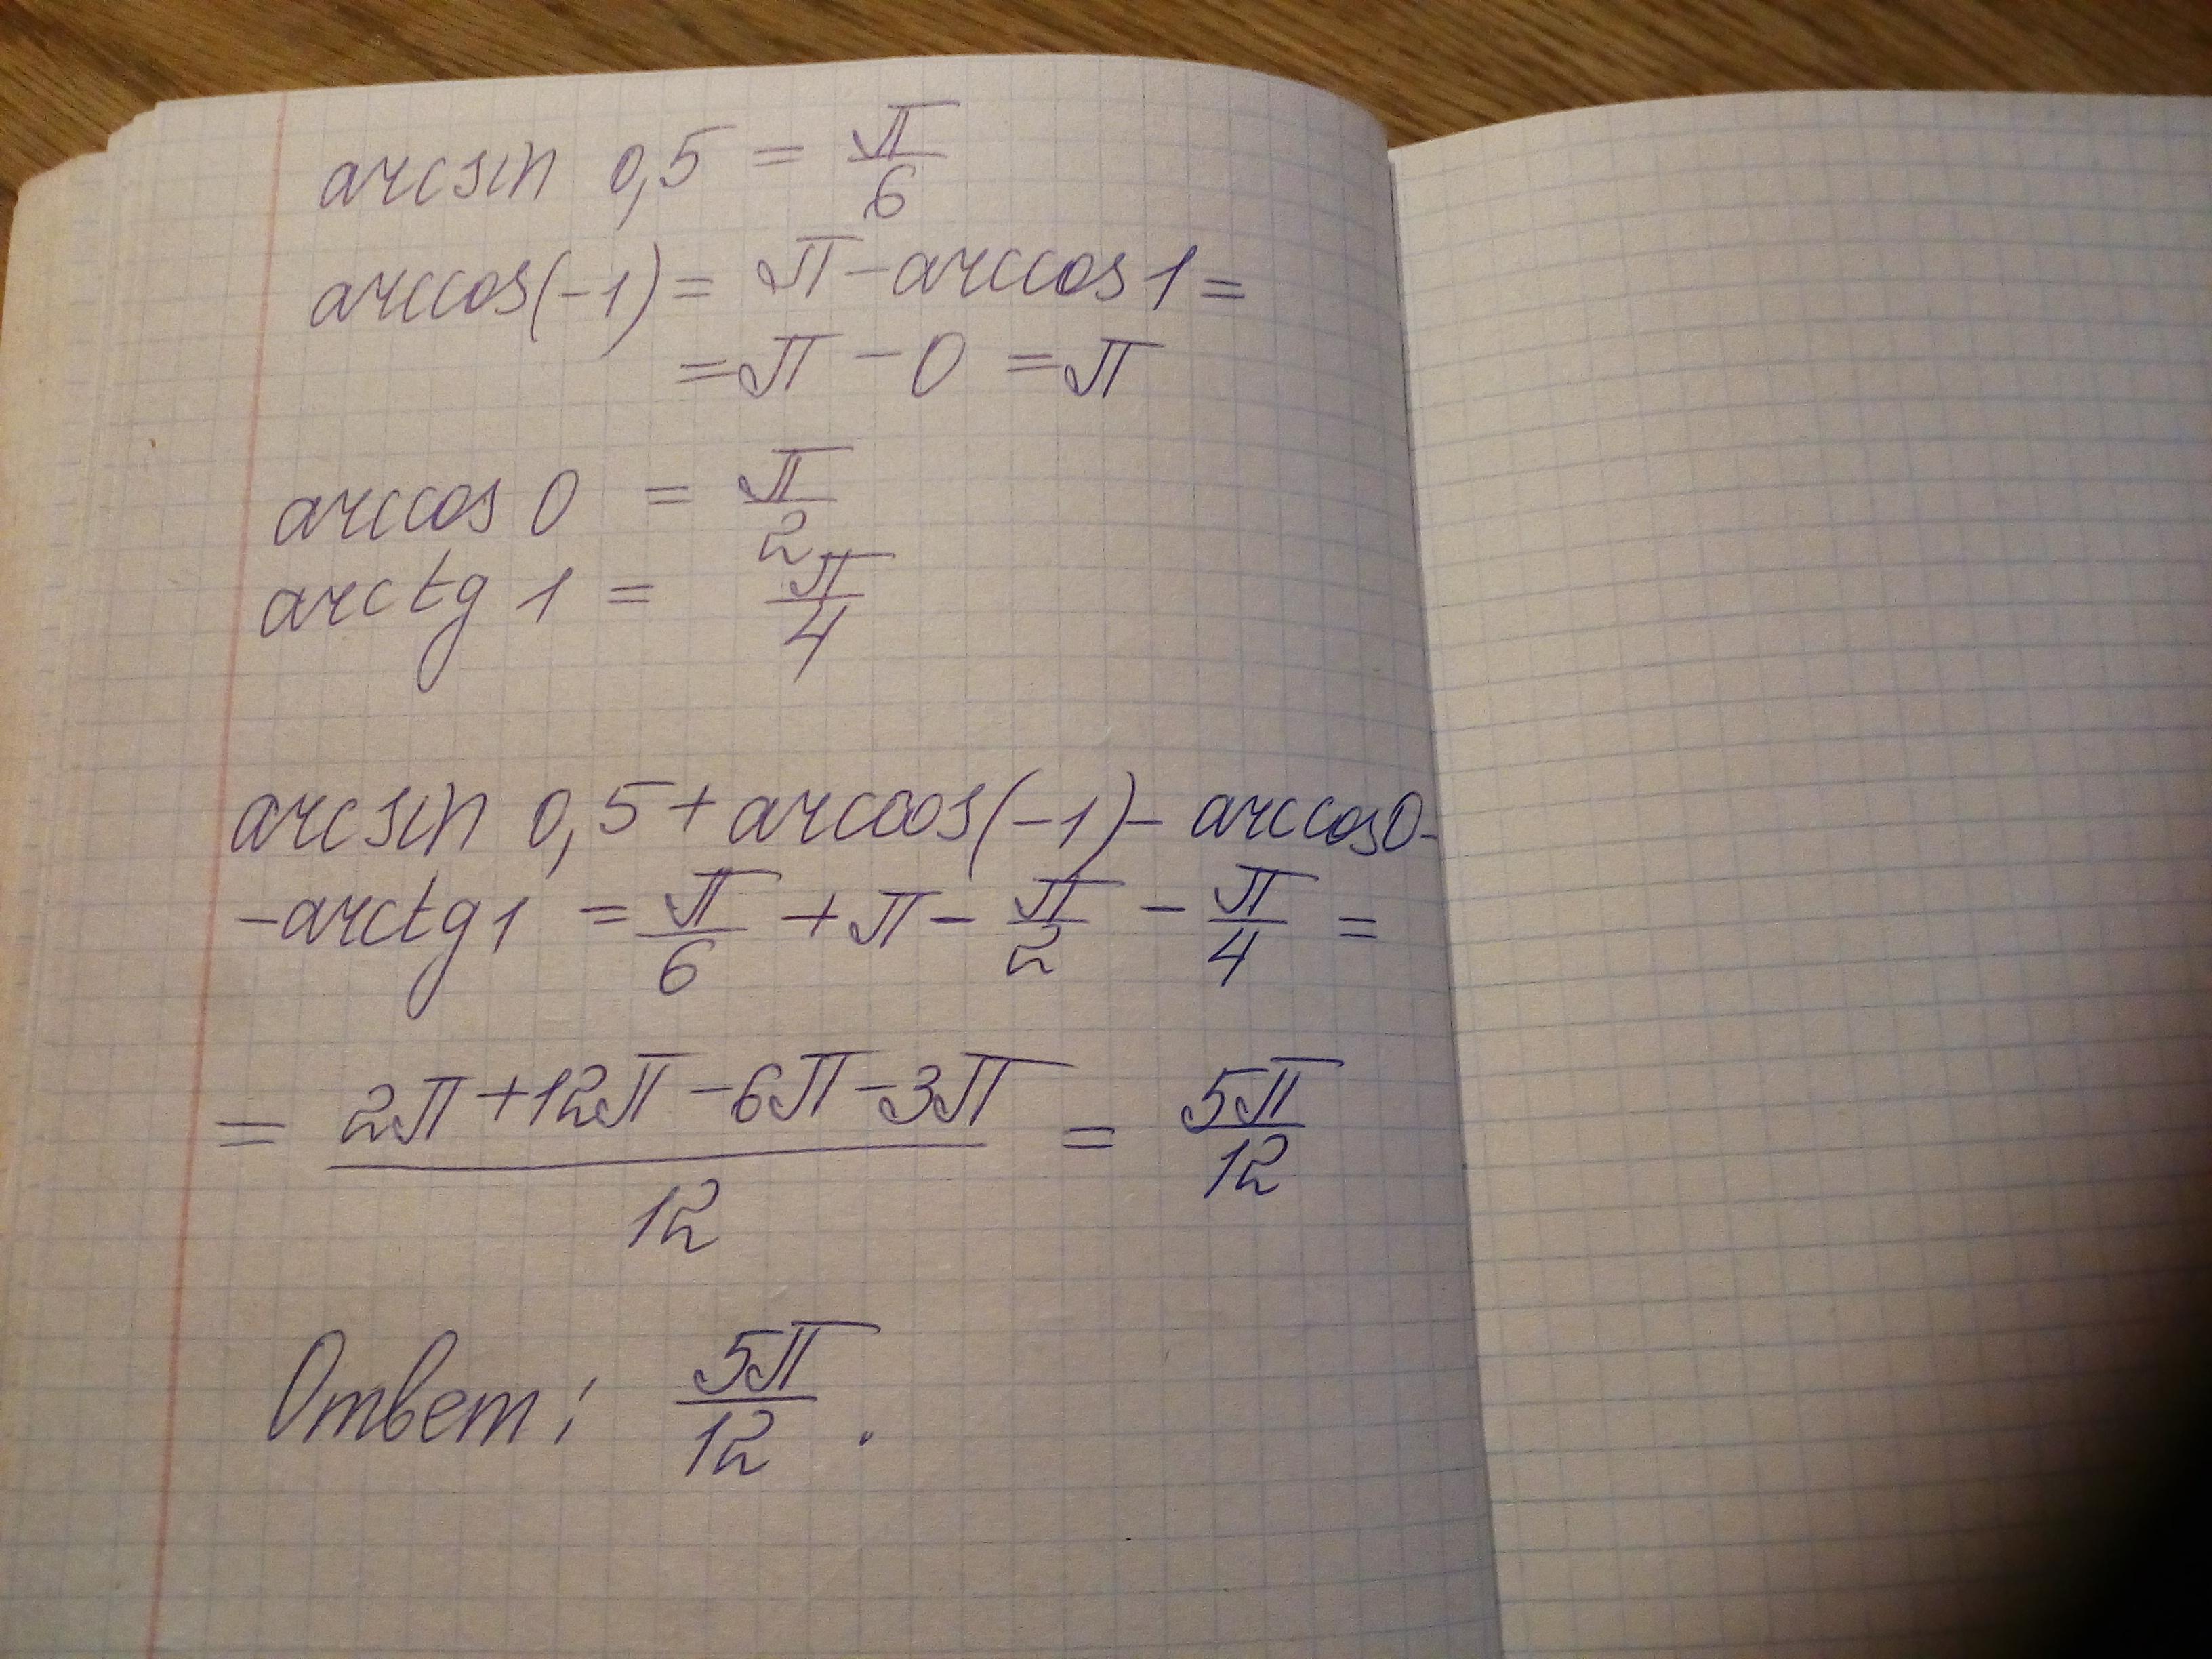 arcsin 0,5 = π/6
arccos(-1) = π - arccos 1 =
= π - 0 = π
arccos 0 = π/2
arctg 1 = π/4
arcsin 0,5 + arccos(-1) - arccos 0 -
- arctg 1 = π/6 + π - π/2 - π/4 =
= (2π + 12π - 6π - 3π)/12 = 5π/12
Ответ: 5π/12.